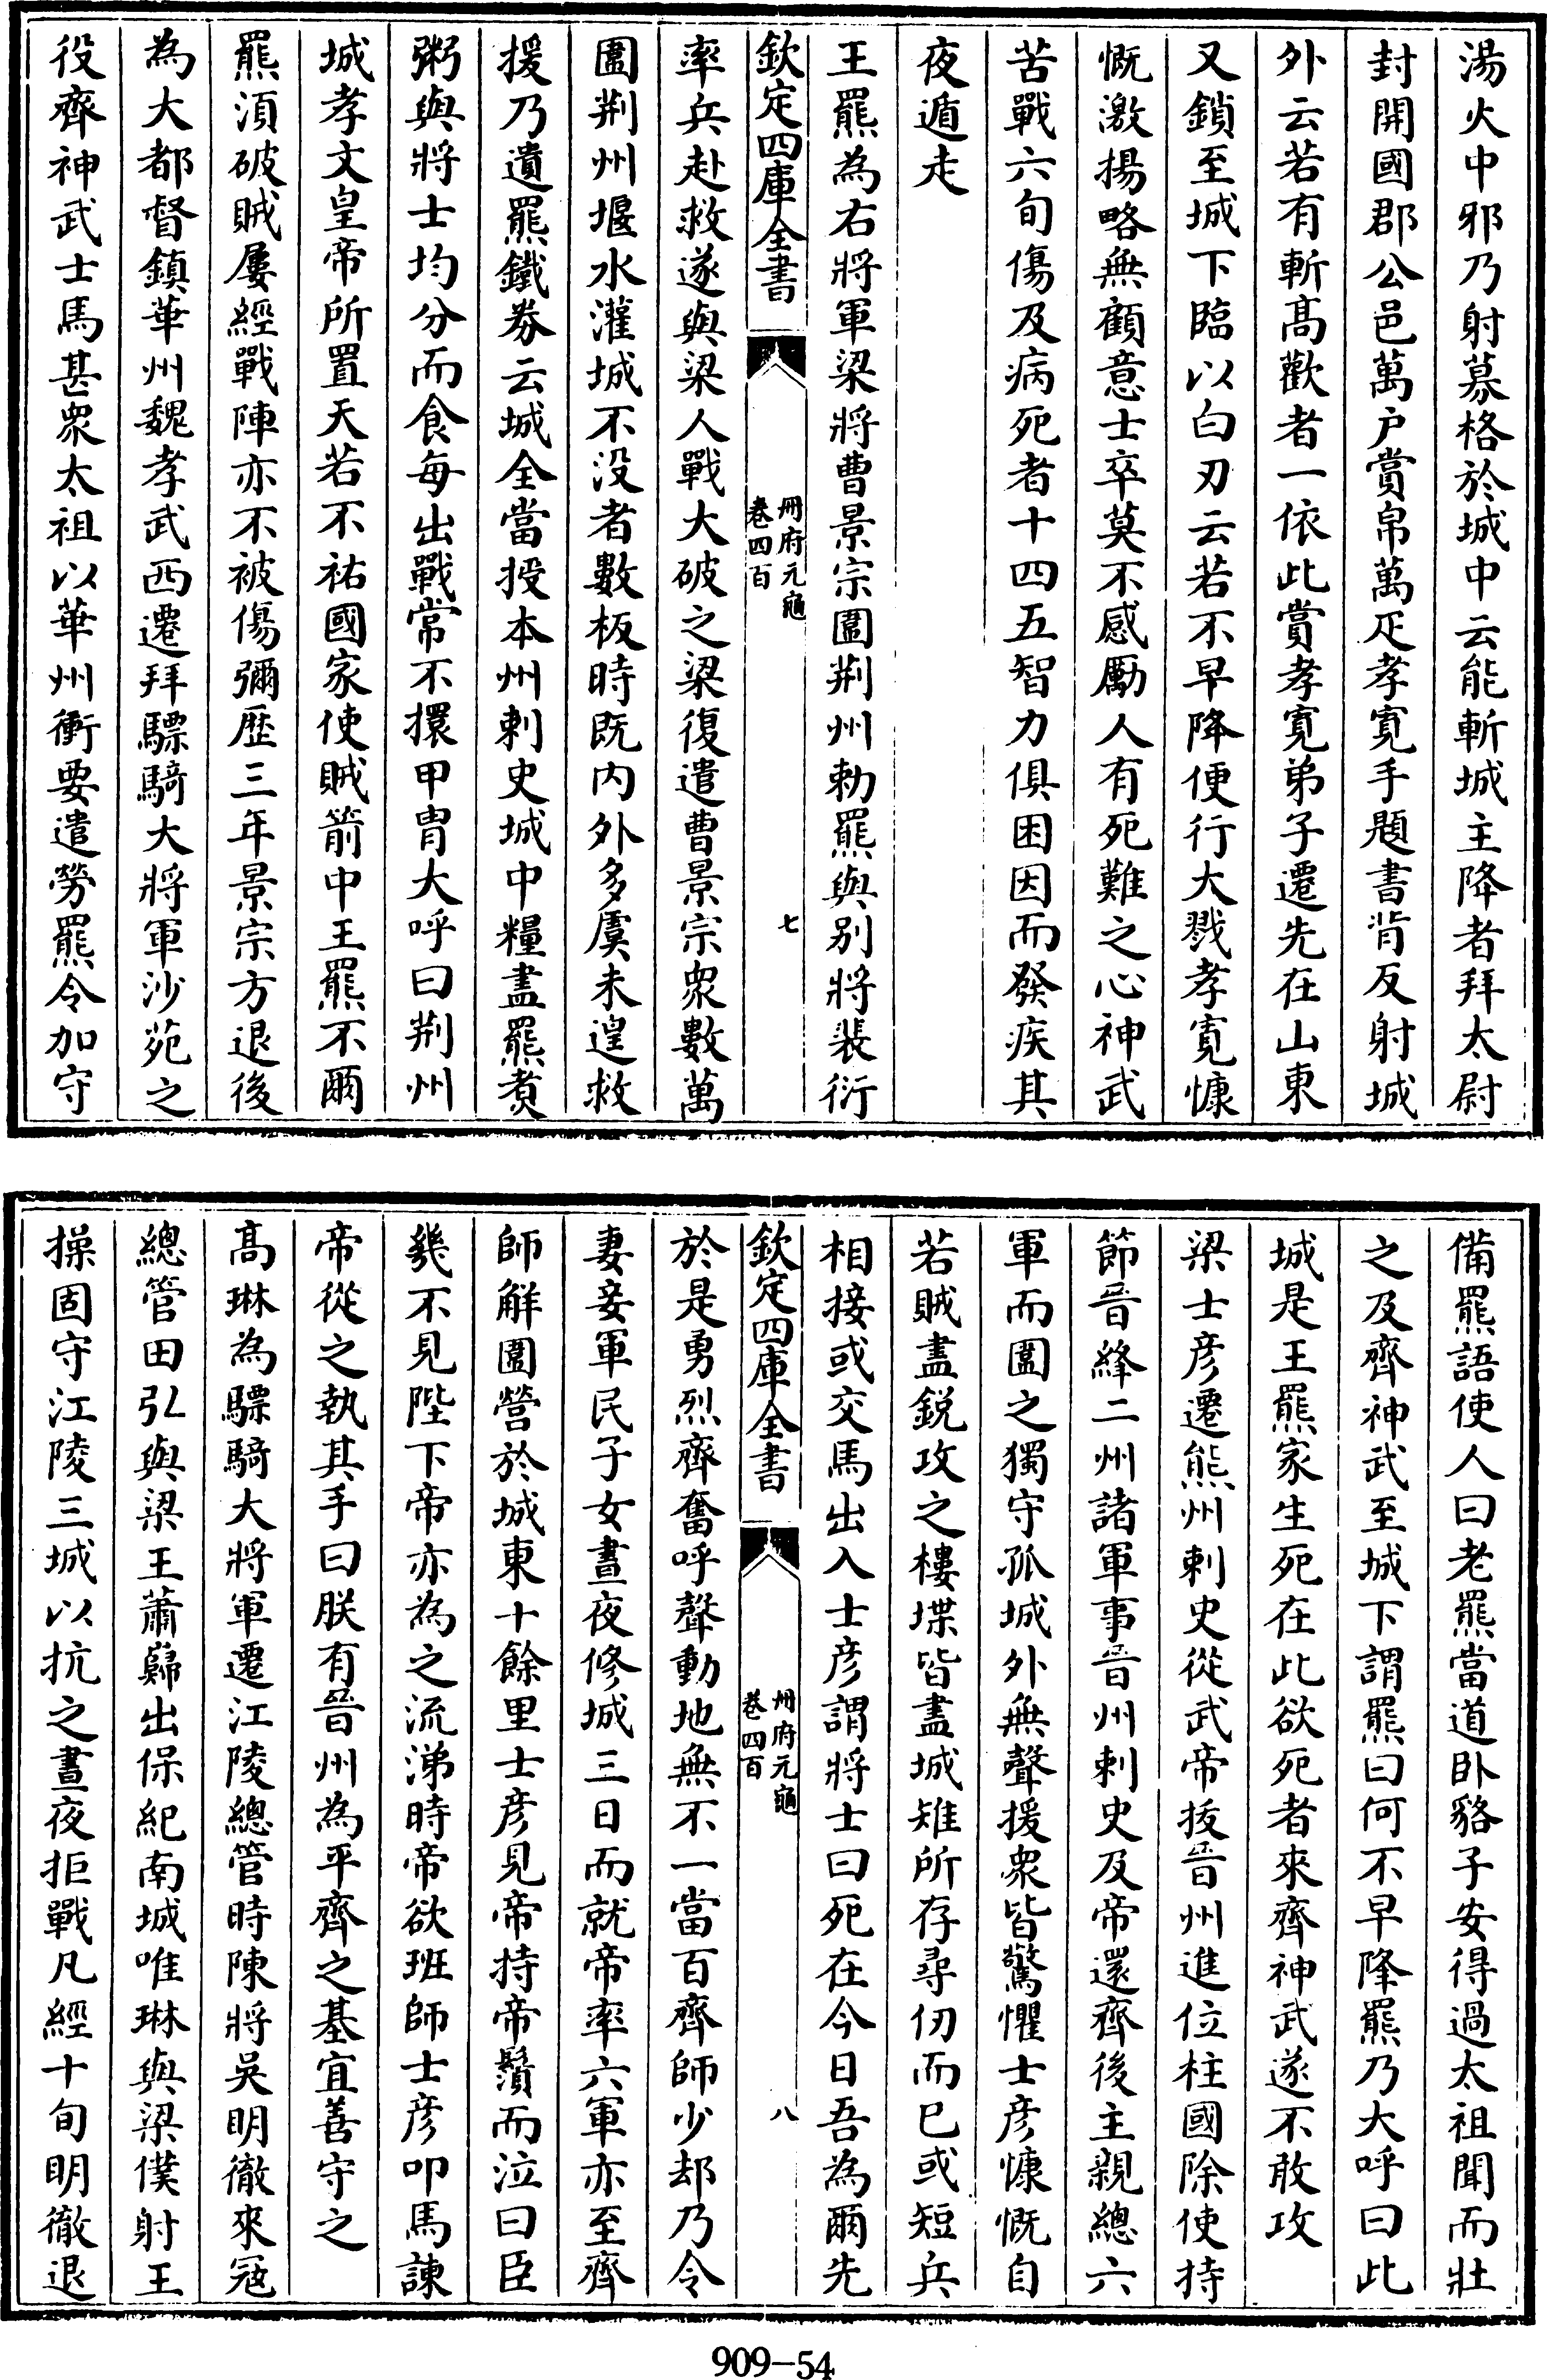 湯火中邪乃射募格於城中云能斬城主降者拜太尉
封開國郡公邑萬户賞帛萬疋孝寛手題書背反射城
外云若有斬髙歡者一依此賞孝寛弟子遷先在山東
又鎖至城下臨以白刃云若不早降便行大戮孝寛慷
慨激揚略無顧意士卒莫不感勵人有死難之心神武
苦戰六旬傷及病死者十四五智力俱困因而發疾其
夜遁走
王羆為右將軍梁將曹景宗圍荆州勅羆與别將裴衍
欽定四庫全書
冊府元龜
卷四百
七
率兵赴救遂與梁人戰大破之梁復遣曹景宗衆數萬
圍荆州堰水灌城不没者數板時既内外多虞未遑救
援乃遺羆鐵券云城全當授本州刺史城中糧盡羆煑
粥與將士均分而食每出戰常不擐甲胄大呼曰荆州
城孝文皇帝所置天若不祐國家使賊箭中王羆不爾
羆湏破賊屢經戰陣亦不被傷彌歴三年景宗方退後
為大都督鎮華州魏孝武西遷拜驃騎大將軍沙苑之
役齊神武士馬甚衆太祖以華州衝要遣勞羆令加守
備羆語使人曰老羆當道卧貉子安得過太祖聞而壯
之及齊神武至城下謂羆曰何不早降羆乃大呼曰此
城是王羆家生死在此欲死者來齊神武遂不敢攻
梁士彦遷熊州刺史從武帝拔晉州進位柱國除使持
節晉絳二州諸軍事晉州刺史及帝還齊後主親總六
軍而圍之獨守孤城外無聲援衆皆驚懼士彦慷慨自
若賊盡鋭攻之樓堞皆盡城雉所存尋仞而已或短兵
相接或交馬出入士彦謂將士曰死在今日吾為爾先
欽定四庫全書
冊府元龜
卷四百
八
於是勇烈齊奮呼聲動地無不一當百齊師少却乃令
妻妾軍民子女晝夜修城三日而就帝率六軍亦至齊
師解圍營於城東十餘里士彦見帝持帝鬚而泣曰臣
幾不見陛下帝亦為之流涕時帝欲班師士彦叩馬諫
帝從之執其手曰朕有晉州為平齊之基宜善守之
髙琳為驃騎大將軍遷江陵總管時陳將吳明徹來冦
總管田弘與梁王蕭巋出保紀南城唯琳與梁僕射王
操固守江陵三城以抗之晝夜拒戰凡經十旬明徹退
909-54